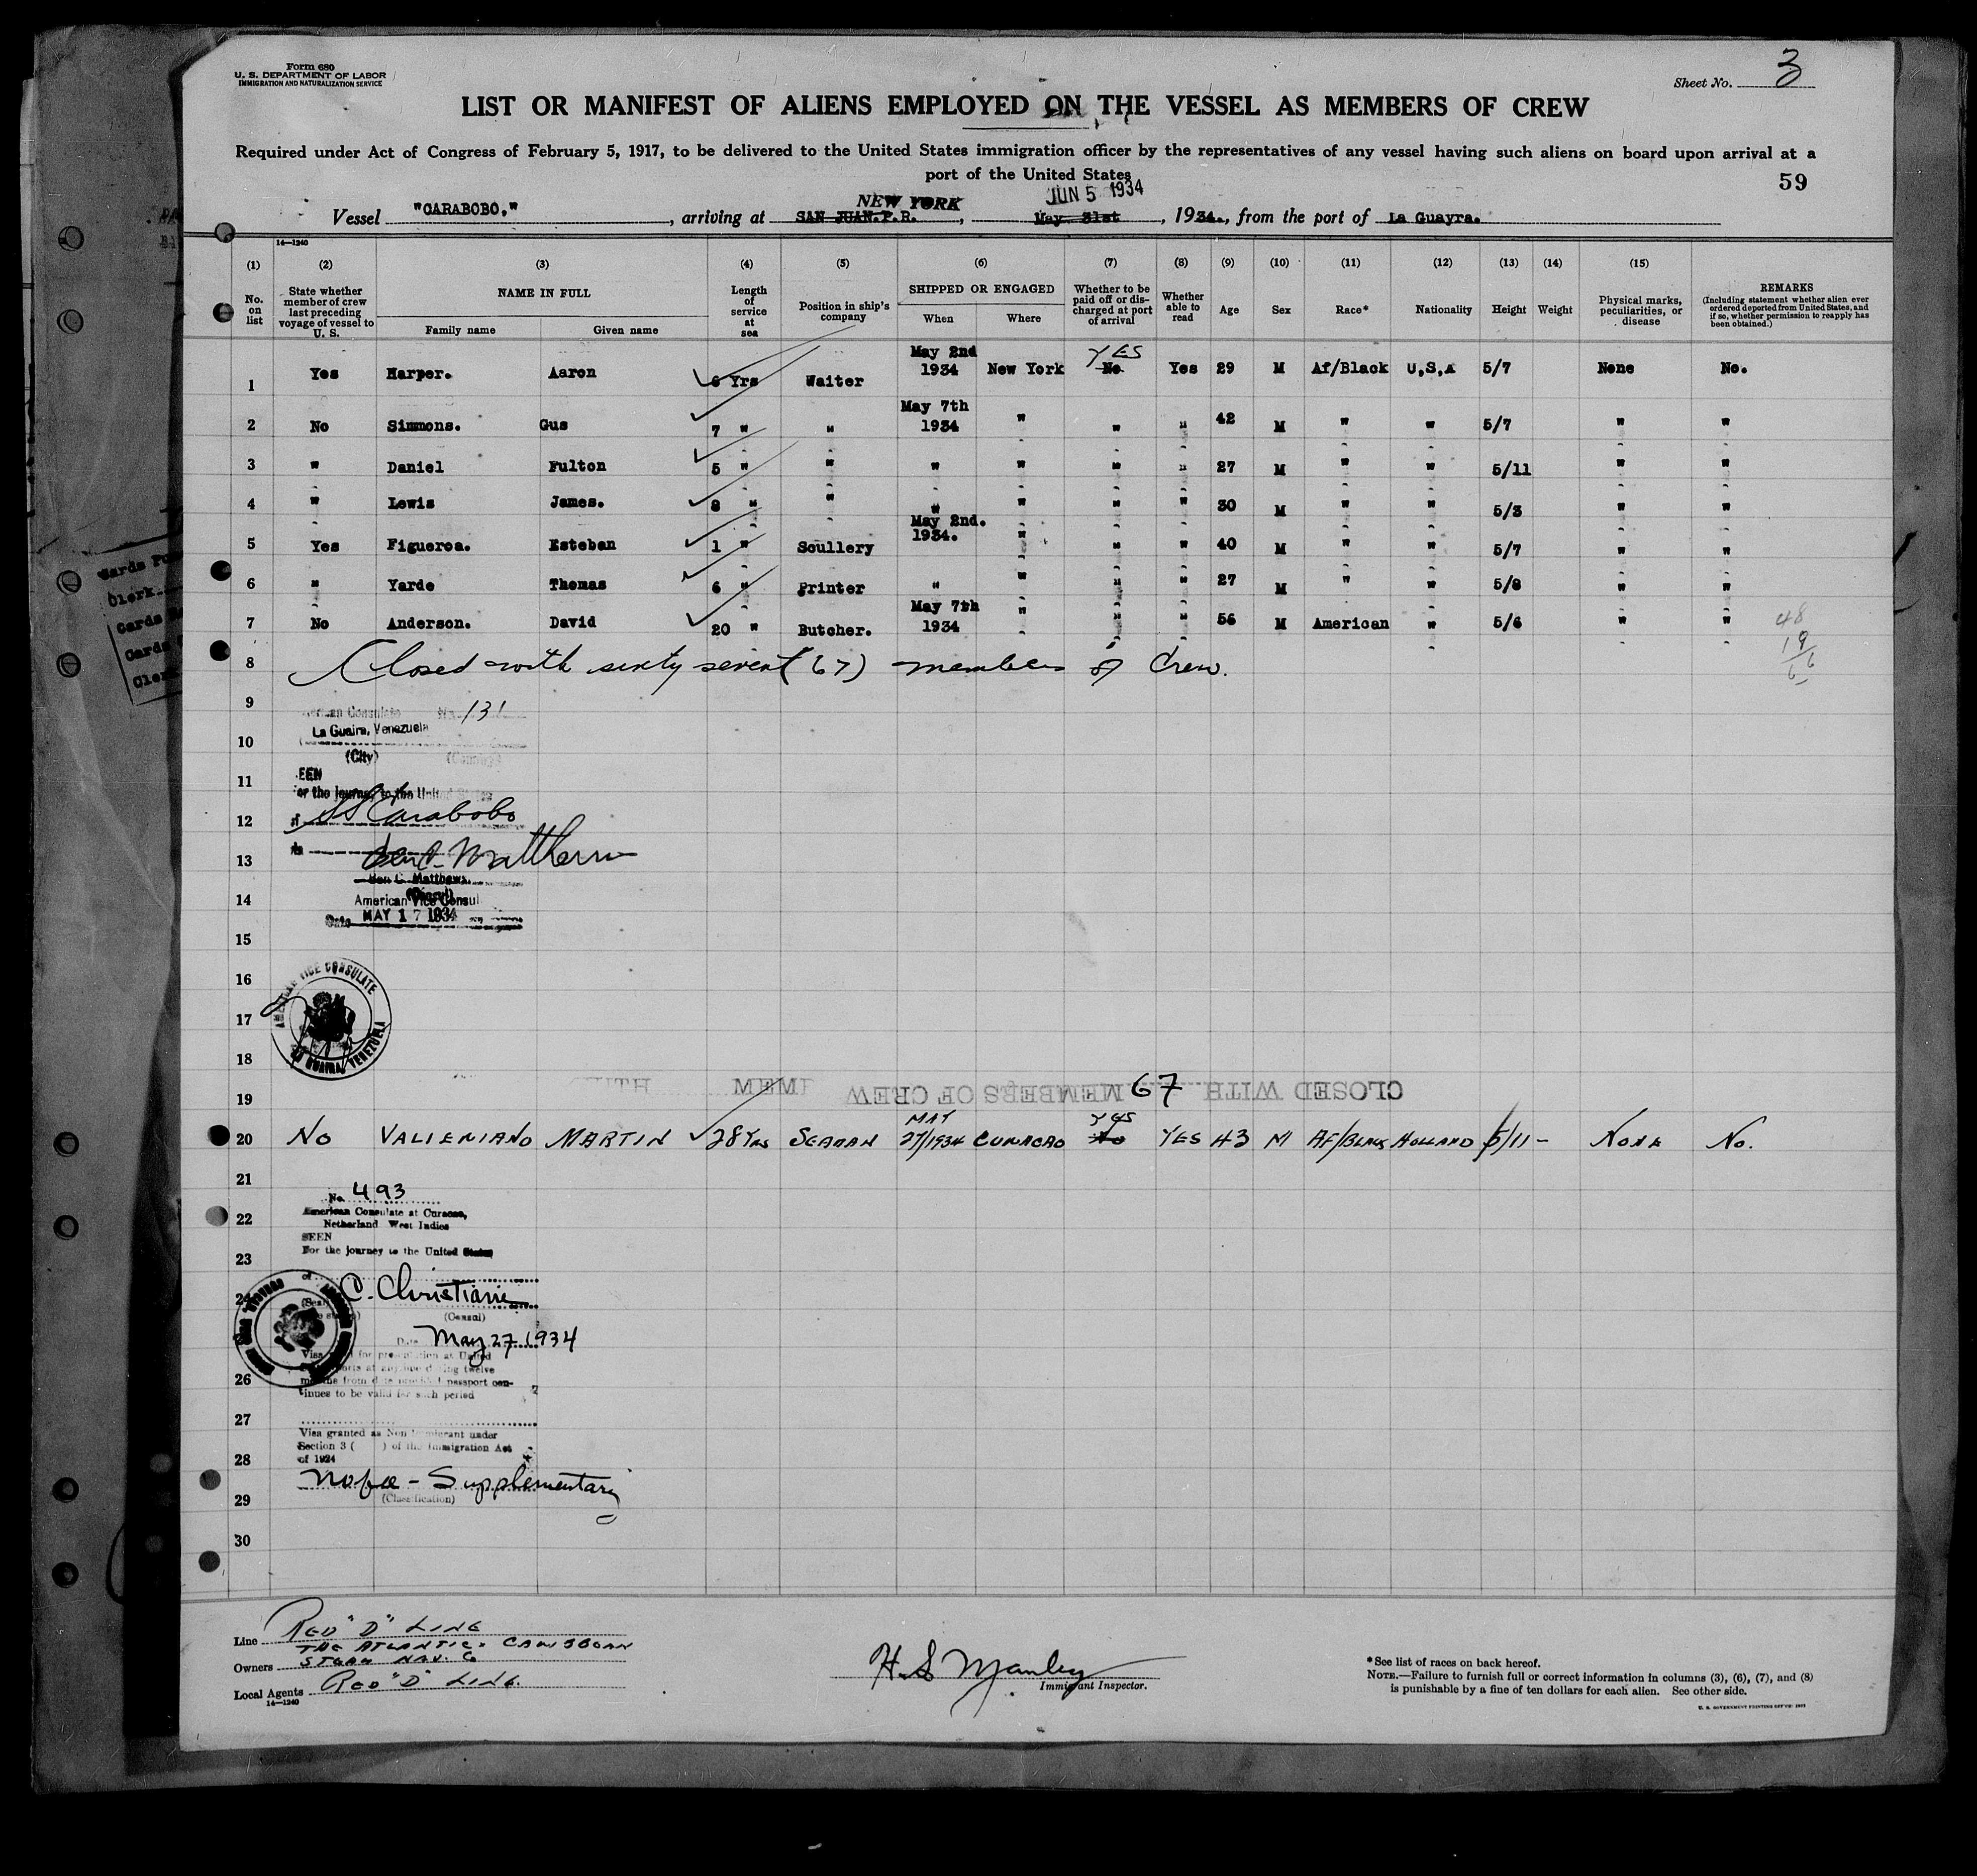 Form 680
U. S. DEPARTMENT OF LABOR
IMMIGRATION AND NATURALIZATION SERVICE
Sheet No. 3
LIST OR MANIFEST OF ALIENS EMPLOYED ON THE VESSEL AS MEMBERS OF CREW
Required under Act of Congress of February 5, 1917, to be delivered to the United States immigration officer by the representatives of any vessel having such aliens on board upon arrival at a
port of the United States
59
NEW YORK JUN 5 1934
Vessel "CARABOBO," , arriving at SAN JUAN.P.R. , May 31st , 1934., from the port of La Guayra.
14—1240
(1) (2) (3) (4) (5) (6) (7) (8) (9) (10) (11) (12) (13) (14) (15)
No. on list
State whether member of crew last preceding voyage of vessel to U. S.
NAME IN FULL
Family name Given name
Length of service at sea
Position in ship's company
SHIPPED OR ENGAGED
When Where
Whether to be paid off or discharged at port of arrival
Whether able to read
Age Sex Race* Nationality Height Weight
Physical marks, peculiarities, or disease
REMARKS
(Including statement whether alien ever ordered deported from United States, and if so, whether permission to reapply has been obtained.)
1 Yes Harper. Aaron 6 Yrs Waiter May 2nd 1934 New York YES No Yes 29 M Af/Black U,S,A 5/7 None No.
2 No Simmons. Gus 7 " " May 7th 1934 " " " 42 M " " 5/7 " "
3 " Daniel Fulton 5 " " " " " " 27 M " " 5/11 " "
4 " Lewis James. 8 " " " " " " 30 M " " 5/3 " "
5 Yes Figueroa. Esteban 1 " Scullery May 2nd. 1934. " " " 40 M " " 5/7 " "
6 " Yarde Thomas 6 " Printer " " " " 27 M " " 5/8 " "
7 No Anderson. David 20 " Butcher. May 7th 1934 " " " 56 M American " 5/6 " "
48
19
8 Closed with sixty seven (67) members of Crew.
9
No. 131
10 La Guaira, Venezuela
(City)
11 EEN
or the journey to the United States
12 SS Carabobo
13 Ben C. Matthews
Ben C. Matthews.
14 American Vice Consul
Date MAY 17 1934
15
16
AMERICAN VICE CONSULATE
LA GUAIRA, VENEZUELA
17
18
19 CLOSED WITH 67 MEMBERS OF CREW
20 NO VALIENIANO MARTIN 28 Yrs SEAMAN MAY 27/1934 CURACAO YES No YES 43 M AF/BLACK HOLLAND 5/11 - NONE No.
21
No. 493
22 American Consulate at Curacao,
Netherland West Indies
SEEN
23 For the journey to the United States
of
24 C. Christiani
(Consul)
Date May 27, 1934
Visa for presentation at United
ports at any time during twelve
26 months from date provided passport con-
tinues to be valid for such period
27
Visa granted as Non Immigrant under
Section 3 ( ) of the Immigration Act
28 of 1924
No fee - Supplementary
29 (Classification)
30
Line RED "D" LINE
THE ATLANTIC & CARIBBEAN
Owners STEAM NAV. Co
Local Agents RED "D" LINE.
14—1240
H. S. Manley
Immigrant Inspector.
*See list of races on back hereof.
NOTE.—Failure to furnish full or correct information in columns (3), (6), (7), and (8)
is punishable by a fine of ten dollars for each alien. See other side.